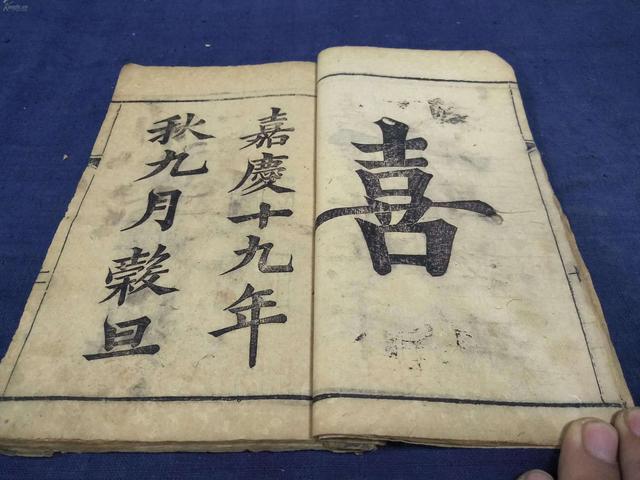 喜
嘉慶十九年
秋九月穀旦